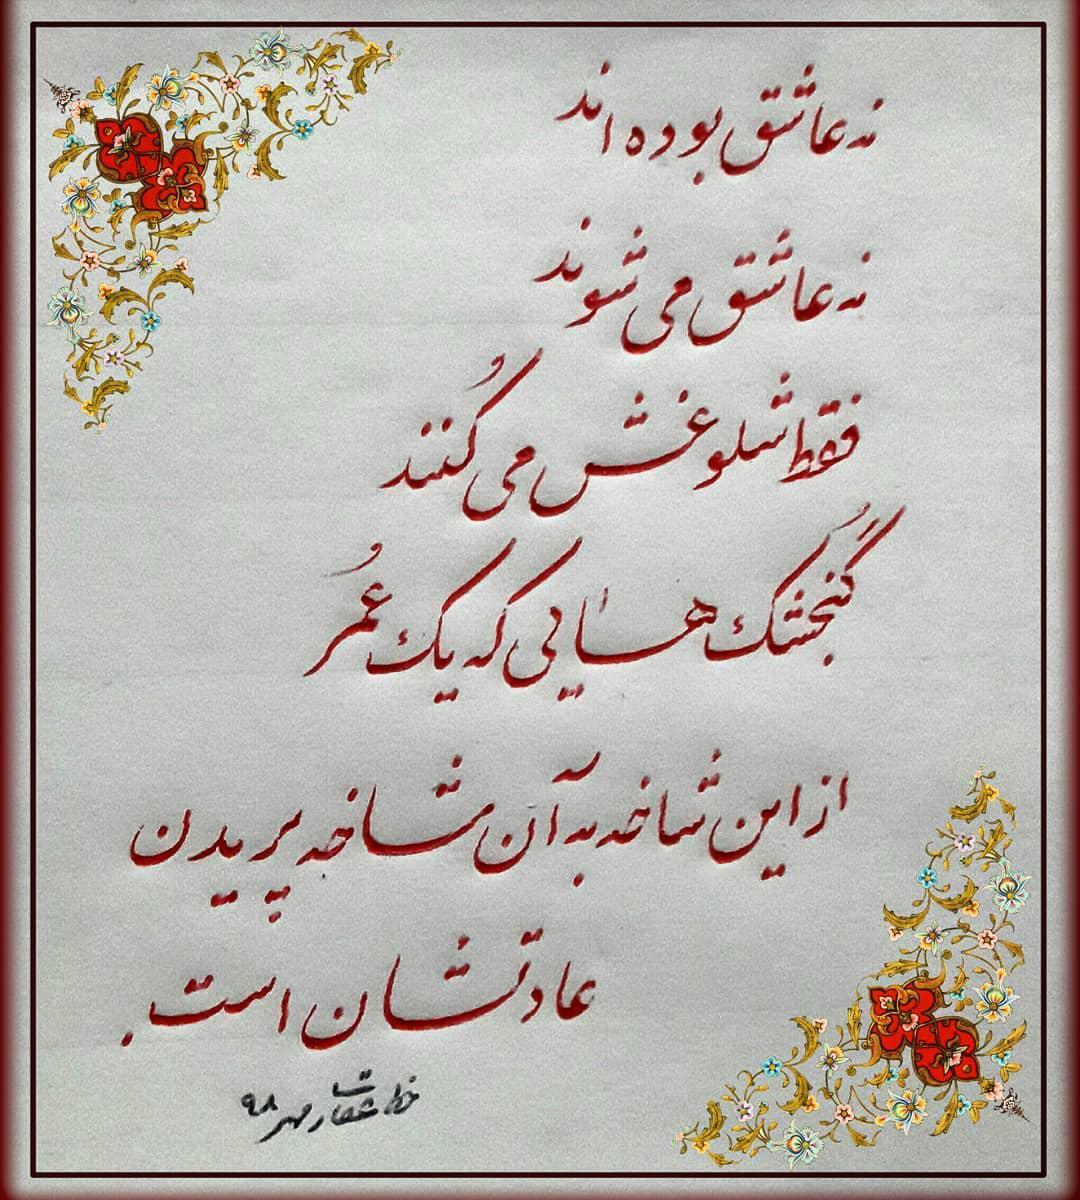 نه عاشق بوده اند
نه عاشق می شوند
فقط شلوغش می کُنند
گُنجشک هایی که یک عُمر
از این شاخه به آن شاخه پریدن
عادتشان است.
خط مهر ۹۸